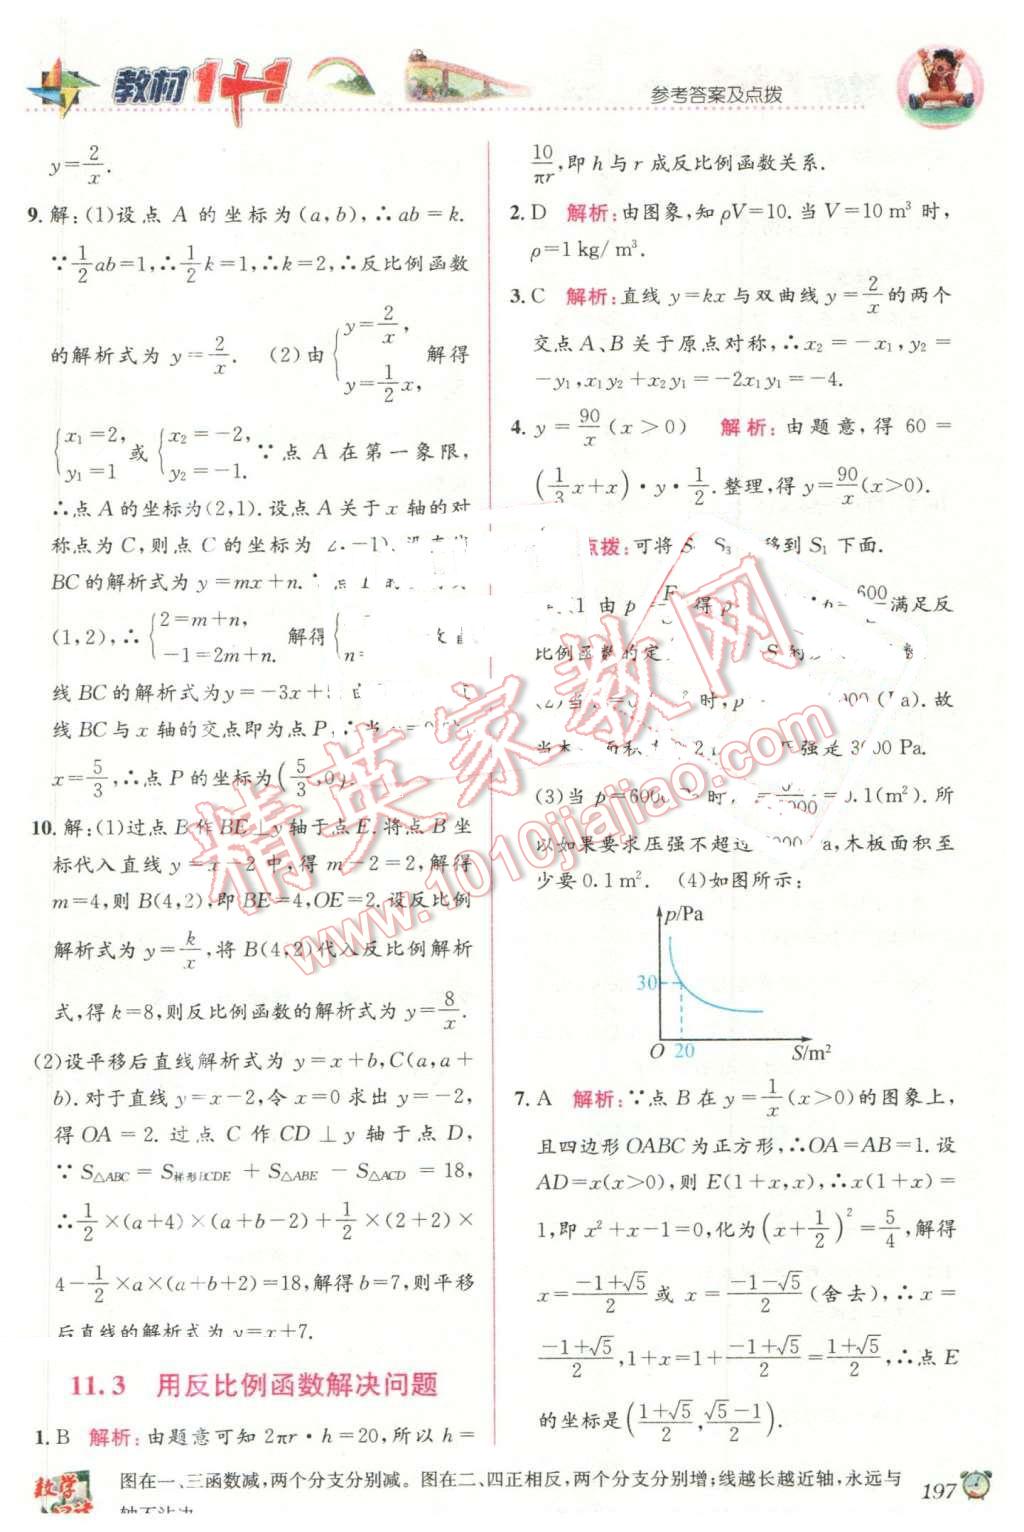 教材1+1
参考答案及点拨
y=2/x.
9. 解:(1)设点 A 的坐标为(a,b),∴ab=k.
∵1/2ab=1,∴1/2k=1,∴k=2,∴反比例函数
的解析式为 y=2/x. (2)由{y=2/x, y=1/2x, 解得
{x₁=2, y₁=1 或 {x₂=-2, y₂=-1. ∵点 A 在第一象限,
∴点 A 的坐标为(2,1).设点 A 关于 x 轴的对
称点为 C,则点 C 的坐标为 2,-1).
BC 的解析式为 y=mx+n.∵点
(1,2),∴{2=m+n, -1=2m+n. 解得{ n=
线 BC 的解析式为 y=-3x+
线 BC 与 x 轴的交点即为点 P,∴当
x=5/3,∴点 P 的坐标为(5/3,0)
10. 解:(1)过点 B 作 BE⊥y 轴于点 E.将点 B 坐
标代入直线 y=x-2 中,得 m-2=2,解得
m=4,则 B(4,2),即 BE=4,OE=2.设反比例
解析式为 y=k/x,将 B(4,2)代入反比例解析
式,得 k=8,则反比例函数的解析式为 y=8/x.
(2)设平移后直线解析式为 y=x+b,C(a,a+
b).对于直线 y=x-2,令 x=0 求出 y=-2,
得 OA=2. 过点 C 作 CD⊥y 轴于点 D,
∵S△ABC=S梯形BCDE+S△ABE-S△ACD=18,
∴1/2×(a+4)×(a+b-2)+1/2×(2+2)×
4-1/2×a×(a+b+2)=18,解得 b=7,则平移
后直线的解析式为 y=x+7.
11.3 用反比例函数解决问题
1. B 解析:由题意可知 2πr·h=20,所以 h=
10/πr,即 h 与 r 成反比例函数关系.
2. D 解析:由图象,知 ρV=10.当 V=10 m³ 时,
ρ=1 kg/ m³.
3. C 解析:直线 y=kx 与双曲线 y=2/x 的两个
交点 A、B 关于原点对称,∴x₂=-x₁,y₂=
-y₁,x₁y₂+x₂y₁=-2x₁y₁=-4.
4. y=90/x(x>0) 解析:由题意,得 60=
(1/3x+x)·y·1/2.整理,得 y=90/x(x>0).
点拨:可将 S S₃ 移到 S₁ 下面.
由 p= 得 p 600 满足反
比例函数的定
(2)当 时,p 3000(Pa).故
当木 面积 压强是 3000 Pa.
(3)当 p=6000 时, =0.1(m²).所
以如果要求压强不超过 6000 Pa,木板面积至
少要 0.1 m². (4)如图所示:
p/Pa
30
O 20 S/m²
7. A 解析:∵点 B 在 y=1/x(x>0)的图象上,
且四边形 OABC 为正方形,∴OA=AB=1.设
AD=x(x>0),则 E(1+x,x),∴x(1+x)=
1,即 x²+x-1=0,化为(x+1/2)²=5/4,解得
x=(-1+√5)/2 或 x=(-1-√5)/2(舍去),∴x=
(-1+√5)/2,1+x=1+(-1+√5)/2=(1+√5)/2,∴点 E
的坐标是((1+√5)/2,(√5-1)/2).
精英家教网
www.1010jiajiao.com
数学
图在一、三函数减,两个分支分别减。图在二、四正相反,两个分支分别增;线越长越近轴,永远与
197